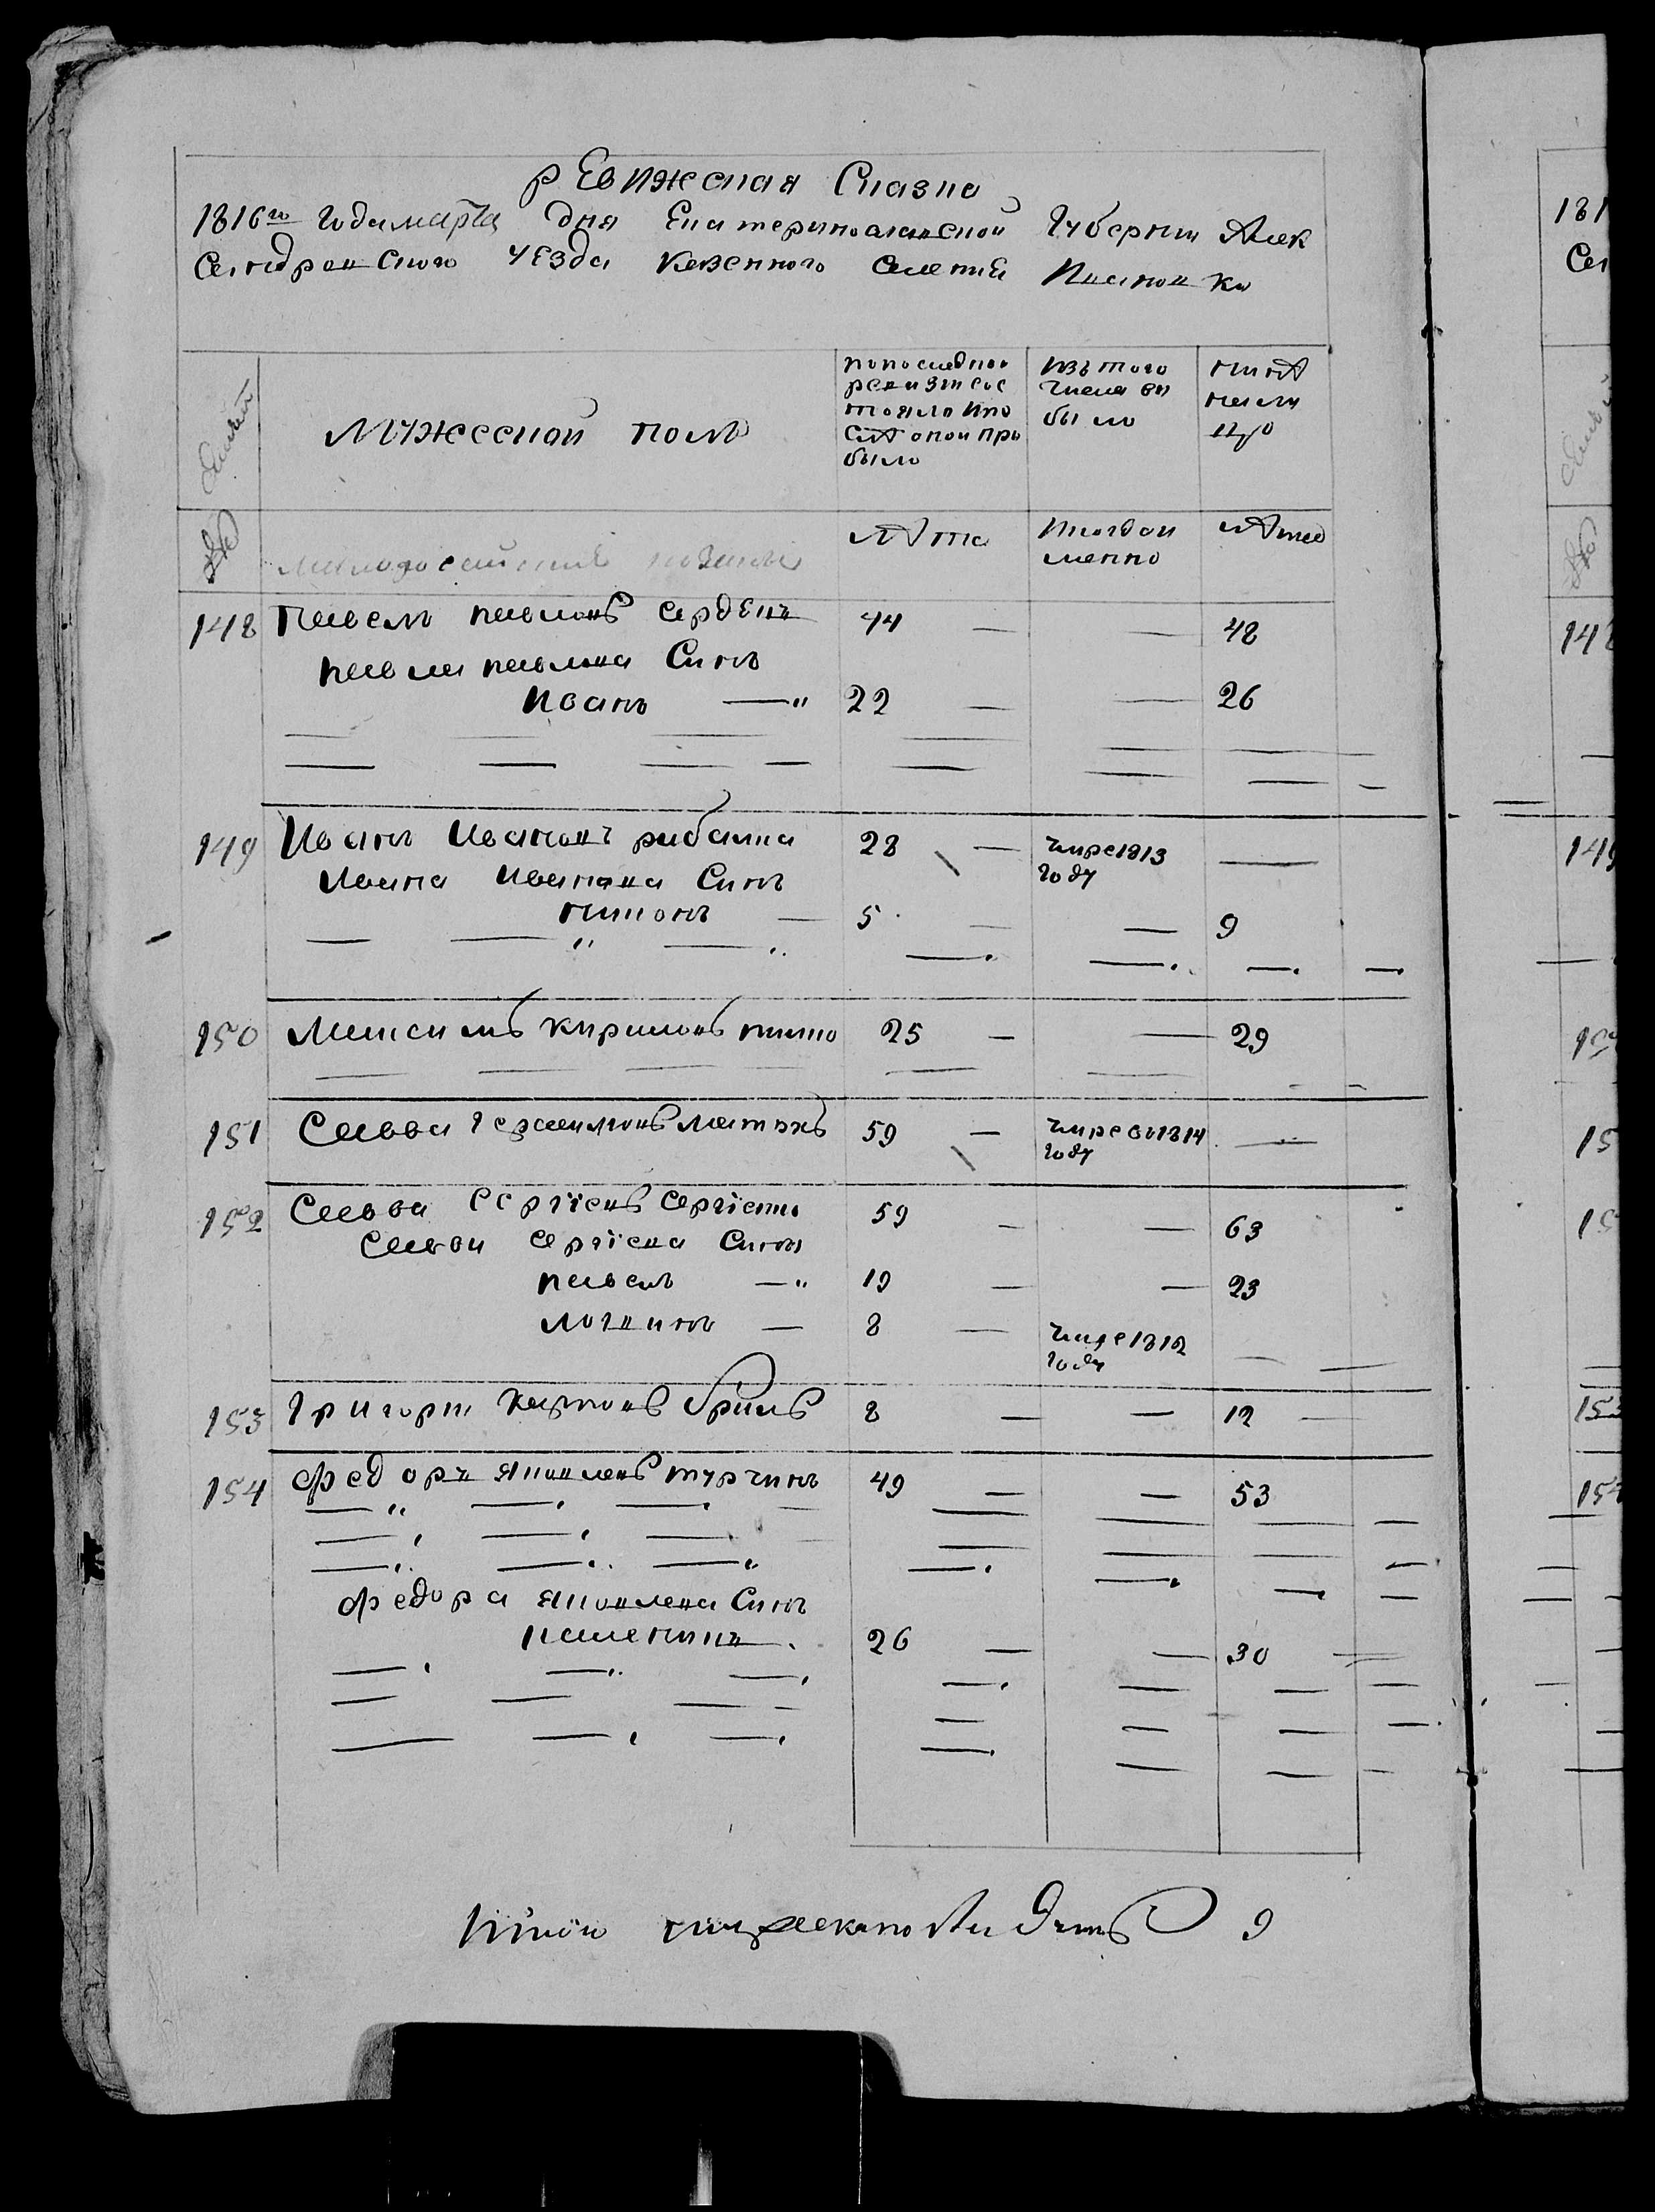 рЕвижская Сказка
1816го Года марта дня Екатеринославской Губернии Алек
сандровского уезда казенного селения Ивановки
Мужеской полъ
попоследней
ревизии сос
тояло ипо
слѣ оной при
было
изътого
числа вы
было
ныне
на ли
цо
семей
№
малороссийские козаки
лѣта
Когдаи
менно
лѣта
148 Павелъ павловъ сердекъ 44 — — 48
павла павлова Синъ
Иванъ — 22 — — 26
149 Иванъ Ивановъ рибалка 28 — умре1813 —
году
Ивана Иванова Синъ
5 — — 9
150 Максимъ кириловъ 25 — — 29
151 Савва Герасимовъ 59 — умре во1814 —
году
152 Савва Сергiевъ Сергiенко 59 — — 63
Саввы Сергiева Сини
павелъ — 19 — — 23
логвинъ — 8 — умре1812 —
году
153 Григории карповъ бриль 8 — — 12
154 федоръ яковлевъ турчинъ 49 — — 53
федора яковлева Синъ
26 — — 30
9
181
Сег
148
149
150
15
15
153
154